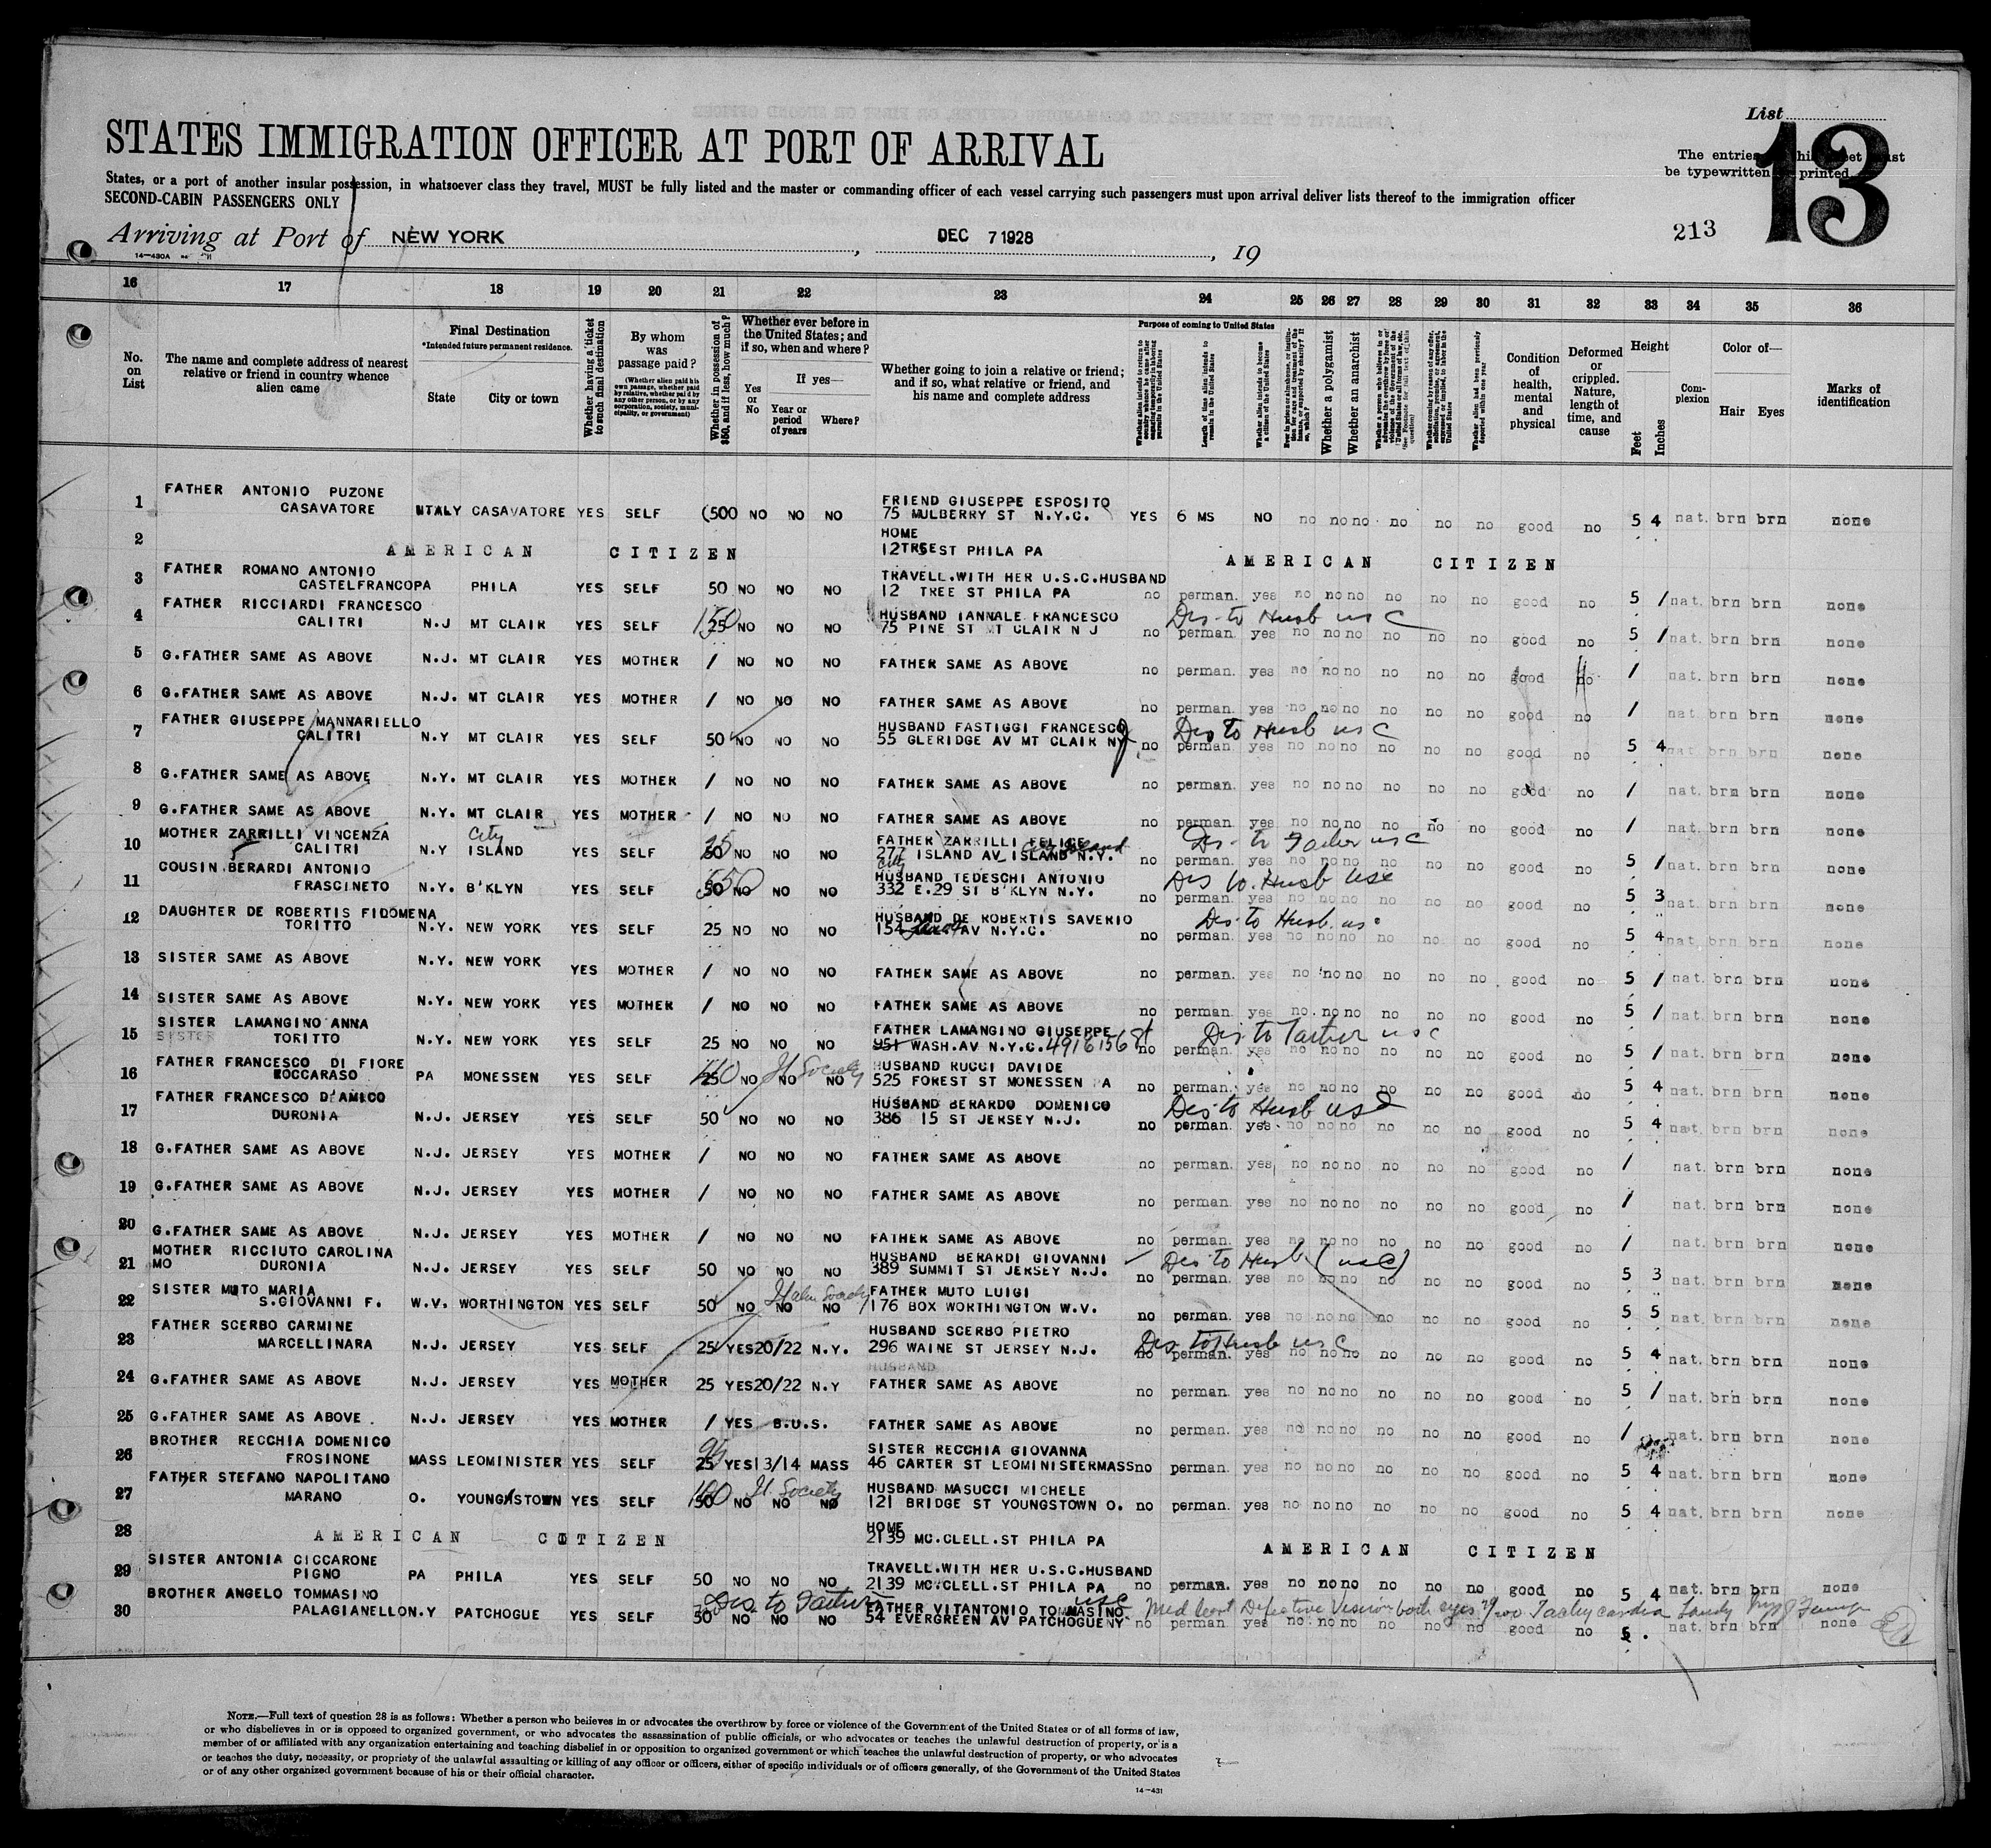 List
STATES IMMIGRATION OFFICER AT PORT OF ARRIVAL
13
The entries
be typewritten printed.
States, or a port of another insular possession, in whatsoever class they travel, MUST be fully listed and the master or commanding officer of each vessel carrying such passengers must upon arrival deliver lists thereof to the immigration officer
SECOND-CABIN PASSENGERS ONLY
213
Arriving at Port of NEW YORK , DEC 7 1928 , 19
14-430A
16 17 18 19 20 21 22 23 24 25 26 27 28 29 30 31 32 33 34 35 36
No. on List
The name and complete address of nearest relative or friend in country whence alien came
Final Destination
*Intended future permanent residence.
State City or town
Whether having a ticket to such final destination
By whom was passage paid?
(Whether alien paid his own passage, whether paid by relative, whether paid by any other person, or by any corporation, society, municipality, or government)
Whether in possession of $50, and if less, how much?
Whether ever before in the United States; and if so, when and where?
Yes or No
If yes—
Year or period of years
Where?
Whether going to join a relative or friend; and if so, what relative or friend, and his name and complete address
Purpose of coming to United States
Length of time alien intends to remain in the United States
Whether alien intends to become a citizen of the United States
Whether a polygamist
Whether an anarchist
Condition of health, mental and physical
Deformed or crippled. Nature, length of time, and cause
Height
Feet Inches
Complexion
Color of—
Hair Eyes
Marks of identification
1 FATHER ANTONIO PUZONE CASAVATORE ITALY CASAVATORE YES SELF 500 NO NO NO FRIEND GIUSEPPE ESPOSITO 75 MULBERRY ST N.Y.C. YES 6 MS NO no no no no no no good no 5 4 nat. brn brn none
2 AMERICAN CITIZEN HOME 12 TREE ST PHILA PA AMERICAN CITIZEN
3 FATHER ROMANO ANTONIO CASTELFRANCO PA PHILA YES SELF 50 NO NO NO TRAVELL.WITH HER U.S.C.HUSBAND 12 TREE ST PHILA PA no perman. yes no no no no no no good no 5 / nat. brn brn none
4 FATHER RICCIARDI FRANCESCO CALITRI N.J MT CLAIR YES SELF 150 25 NO NO NO HUSBAND IANNALE FRANCESCO 75 PINE ST MT CLAIR N J Dis to Husb us C no perman. yes no no no no no no good no 5 / nat. brn brn none
5 G.FATHER SAME AS ABOVE N.J. MT CLAIR YES MOTHER / NO NO NO FATHER SAME AS ABOVE no perman. yes no no no no no no good no / nat. brn brn none
6 G.FATHER SAME AS ABOVE N.J. MT CLAIR YES MOTHER / NO NO NO FATHER SAME AS ABOVE no perman. yes no no no no no no good no / nat. brn brn none
7 FATHER GIUSEPPE MANNARIELLO CALITRI N.Y MT CLAIR YES SELF 50 NO NO NO HUSBAND FASTIGGI FRANCESCO 55 GLERIDGE AV MT CLAIR NY Dis to Husb us C no perman. yes no no no no no no good no 5 4 nat. brn brn none
8 G.FATHER SAME AS ABOVE N.Y. MT CLAIR YES MOTHER / NO NO NO FATHER SAME AS ABOVE no perman. yes no no no no no no good no / nat. brn brn none
9 G.FATHER SAME AS ABOVE N.Y. MT CLAIR YES MOTHER / NO NO NO FATHER SAME AS ABOVE no perman. yes no no no no no no good no / nat. brn brn none
10 MOTHER ZARRILLI VINCENZA CALITRI N.Y City ISLAND YES SELF 50 NO NO NO FATHER ZARRILLI FELICE 277 ISLAND AV ISLAND N.Y. City Island Dis to Father us C no perman. yes no no no no no no good no 5 / nat. brn brn none
11 COUSIN BERARDI ANTONIO FRASCINETO N.Y. B'KLYN YES SELF 50 NO NO NO HUSBAND TEDESCHI ANTONIO 332 E.29 ST B'KLYN N.Y. Dis to Husb usc no perman. yes no no no no no no good no 5 3 nat. brn brn none
12 DAUGHTER DE ROBERTIS FILOMENA TORITTO N.Y. NEW YORK YES SELF 25 NO NO NO HUSBAND DE ROBERTIS SAVERIO 154 AV N.Y.C. Dis to Husb us no perman. yes no no no no no no good no 5 4 nat. brn brn none
13 SISTER SAME AS ABOVE N.Y. NEW YORK YES MOTHER / NO NO NO FATHER SAME AS ABOVE no perman. yes no no no no no no good no 5 / nat. brn brn none
14 SISTER SAME AS ABOVE N.Y. NEW YORK YES MOTHER / NO NO NO FATHER SAME AS ABOVE no perman. yes no no no no no no good no 5 / nat. brn brn none
15 SISTER LAMANGINO ANNA SISTER TORITTO N.Y. NEW YORK YES SELF 25 NO NO NO FATHER LAMANGINO GIUSEPPE 951 WASH.AV N.Y.C. Dis to Father us c no perman. yes no no no no no no good no 5 / nat. brn brn none
16 FATHER FRANCESCO DI FIORE ROCCARASO PA MONESSEN YES SELF 25 NO NO NO It Society HUSBAND RUCCI DAVIDE 525 FOREST ST MONESSEN PA no perman. yes no no no no no no good no 5 4 nat. brn brn none
17 FATHER FRANCESCO D'AMICO DURONIA N.J. JERSEY YES SELF 50 NO NO NO HUSBAND BERARDO DOMENICO 386 15 ST JERSEY N.J. Dis to Husb usc no perman. yes no no no no no no good no 5 4 nat. brn brn none
18 G.FATHER SAME AS ABOVE N.J. JERSEY YES MOTHER / NO NO NO FATHER SAME AS ABOVE no perman. yes no no no no no no good no / nat. brn brn none
19 G.FATHER SAME AS ABOVE N.J. JERSEY YES MOTHER / NO NO NO FATHER SAME AS ABOVE no perman. yes no no no no no no good no / nat. brn brn none
20 G.FATHER SAME AS ABOVE N.J. JERSEY YES MOTHER / NO NO NO FATHER SAME AS ABOVE no perman. yes no no no no no no good no / nat. brn brn none
21 MOTHER RICCIUTO CAROLINA MO DURONIA N.J. JERSEY YES SELF 50 NO NO NO HUSBAND BERARDI GIOVANNI 389 SUMMIT ST JERSEY N.J. Dis to Husb (usC) no perman. yes no no no no no no good no 5 3 nat. brn brn none
22 SISTER MUTO MARIA S.GIOVANNI F. W.V. WORTHINGTON YES SELF 50 NO NO NO Italian Society FATHER MUTO LUIGI 176 BOX WORTHINGTON W.V. no perman. yes no no no no no no good no 5 5 nat. brn brn none
23 FATHER SCERBO CARMINE MARCELLINARA N.J. JERSEY YES SELF 25 YES 20/22 N.Y. HUSBAND SCERBO PIETRO 296 WAINE ST JERSEY N.J. Dis to Husb us C no perman. yes no no no no no no good no 5 4 nat. brn brn none
24 G.FATHER SAME AS ABOVE N.J. JERSEY YES MOTHER 25 YES 20/22 N.Y HUSBAND FATHER SAME AS ABOVE no perman. yes no no no no no no good no 5 / nat. brn brn none
25 G.FATHER SAME AS ABOVE . N.J. JERSEY YES MOTHER / YES B.U.S. FATHER SAME AS ABOVE no perman. yes no no no no no no good no / nat. brn brn none
26 BROTHER RECCHIA DOMENICO FROSINONE MASS LEOMINISTER YES SELF 25 YES 13/14 MASS SISTER RECCHIA GIOVANNA 46 CARTER ST LEOMINISTER MASS no perman. yes no no no no no no good no 5 4 nat. brn brn none
27 FATHER STEFANO NAPOLITANO MARANO O. YOUNGSTOWN YES SELF 100 50 NO NO NO It. Society HUSBAND MASUCCI MICHELE 121 BRIDGE ST YOUNGSTOWN O. no perman. yes no no no no no no good no 5 4 nat. brn brn none
28 AMERICAN CITIZEN HOME 2139 MC.CLELL.ST PHILA PA AMERICAN CITIZEN
29 SISTER ANTONIA CICCARONE PIGNO PA PHILA YES SELF 50 NO NO NO TRAVELL.WITH HER U.S.C.HUSBAND 2139 MC.CLELL.ST PHILA PA no perman. yes no no no no no no good no 5 4 nat. brn brn none
30 BROTHER ANGELO TOMMASINO PALAGIANELLO N.Y PATCHOGUE YES SELF 50 NO NO NO Dis to Father usc FATHER VITANTONIO TOMMASINO 54 EVERGREEN AV PATCHOGUE NY Med Cert Defective Vision both eyes Tachycardia no perman. yes no no no no no no good no 5 nat. brn brn none
NOTE.—Full text of question 28 is as follows: Whether a person who believes in or advocates the overthrow by force or violence of the Government of the United States or of all forms of law,
or who disbelieves in or is opposed to organized government, or who advocates the assassination of public officials, or who advocates or teaches the unlawful destruction of property, or is a
member of or affiliated with any organization entertaining and teaching disbelief in or opposition to organized government or which teaches the unlawful destruction of property, or who advocates
or teaches the duty, necessity, or propriety of the unlawful assaulting or killing of any officer or officers, either of specific individuals or of officers generally, of the Government of the United States
or of any other organized government because of his or their official character.
14-431